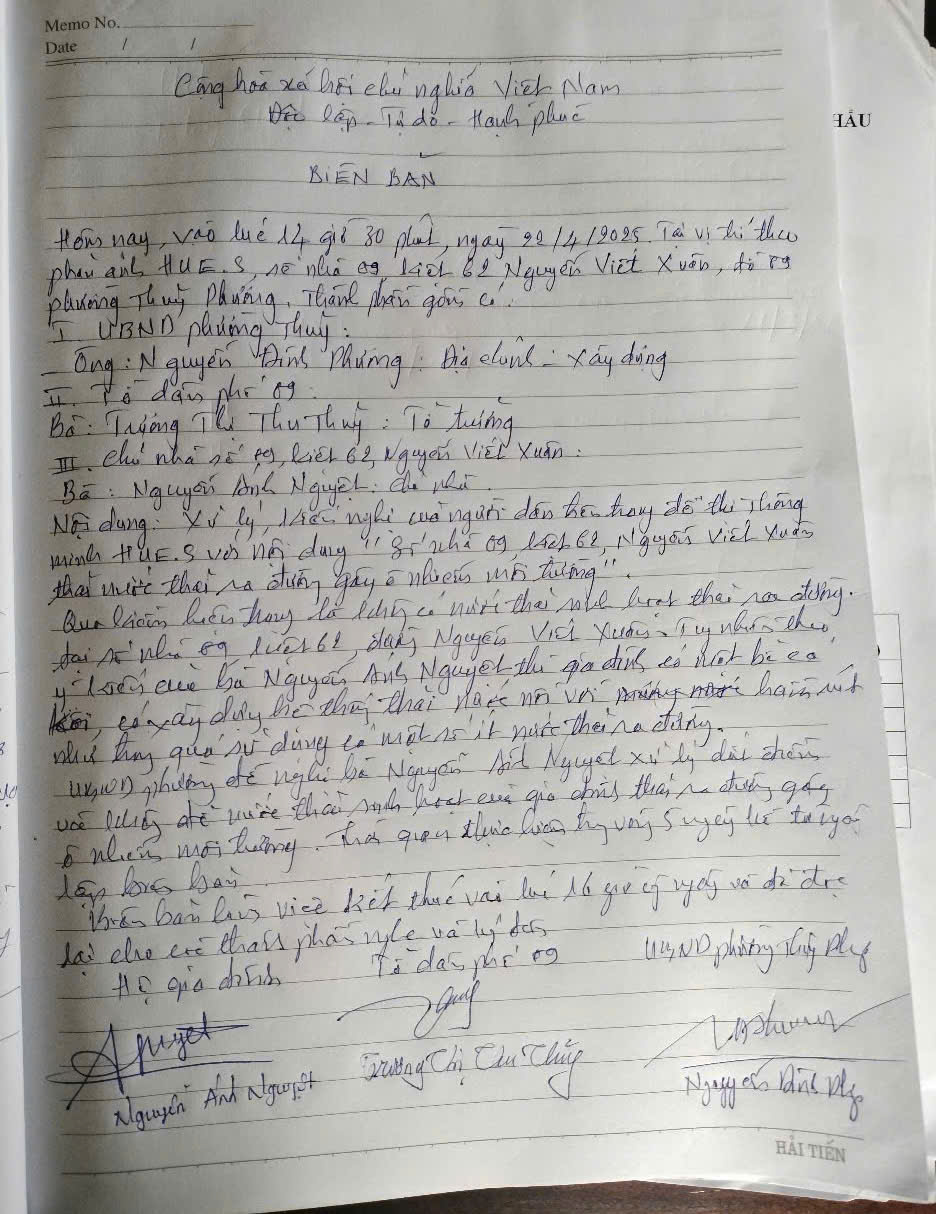 Memo No.
Date / /
Cộng hoà xã hội chủ nghĩa Việt Nam
Độc lập - Tự do - Hạnh phúc
HẨU
BIÊN BẢN
Hôm nay, vào lúc 14 giờ 30 phút, ngày 22/4/2025. Tại vị trí theo
phản ánh HUE.S, số nhà 09, kiệt 62 Nguyễn Viết Xuân, tổ 09
phường Thuỷ Phương. Thành phần gồm có:
I. UBND phường Thuỷ:
- Ông: Nguyễn Đình Phương: Địa chính - Xây dựng
II. Tổ dân phố 09:
Bà: Trương Thị Thu Thuỷ: Tổ trưởng
III. Chủ nhà số 09, kiệt 62, Nguyễn Viết Xuân:
Bà: Nguyễn Ánh Nguyệt: chủ nhà.
Nội dung: Xử lý, kiến nghị của người dân bên trang đô thị thông
minh HUE.S với nội dung "Số nhà 09, kiệt 62, Nguyễn Viết Xuân
thải nước thải ra đường gây ô nhiễm môi trường".
Qua kiểm hiện trạng là không có nước thải sinh hoạt thải ra đường.
tại số nhà 09 kiệt 62, đường Nguyễn Viết Xuân. Tuy nhiên theo
ý kiến của bà Nguyễn Ánh Nguyệt thì gia đình có một bể cá
có xây dựng hệ thống thải nước với hầm rút
nhưng trong quá sử dụng có một số ít nước thải ra đường.
UBND phường đề nghị bà Nguyễn Ánh Nguyệt xử lý dứt điểm
và không để nước thải sinh hoạt của gia đình thải ra đường gây
ô nhiễm môi trường. Thời gian thực hiện trong vòng 5 ngày kể từ ngày
lập biên bản.
Biên bản làm việc kết thúc vào lúc 16 giờ cùng ngày và đã đọc
lại cho các thành phần nghe và ký tên
Hộ gia đình Tổ dân phố 09 UBND phường Thuỷ Phương
Nguyệt
Nguyễn Ánh Nguyệt Trương Thị Thu Thủy Nguyễn Đình Phương
HẢI TIẾN